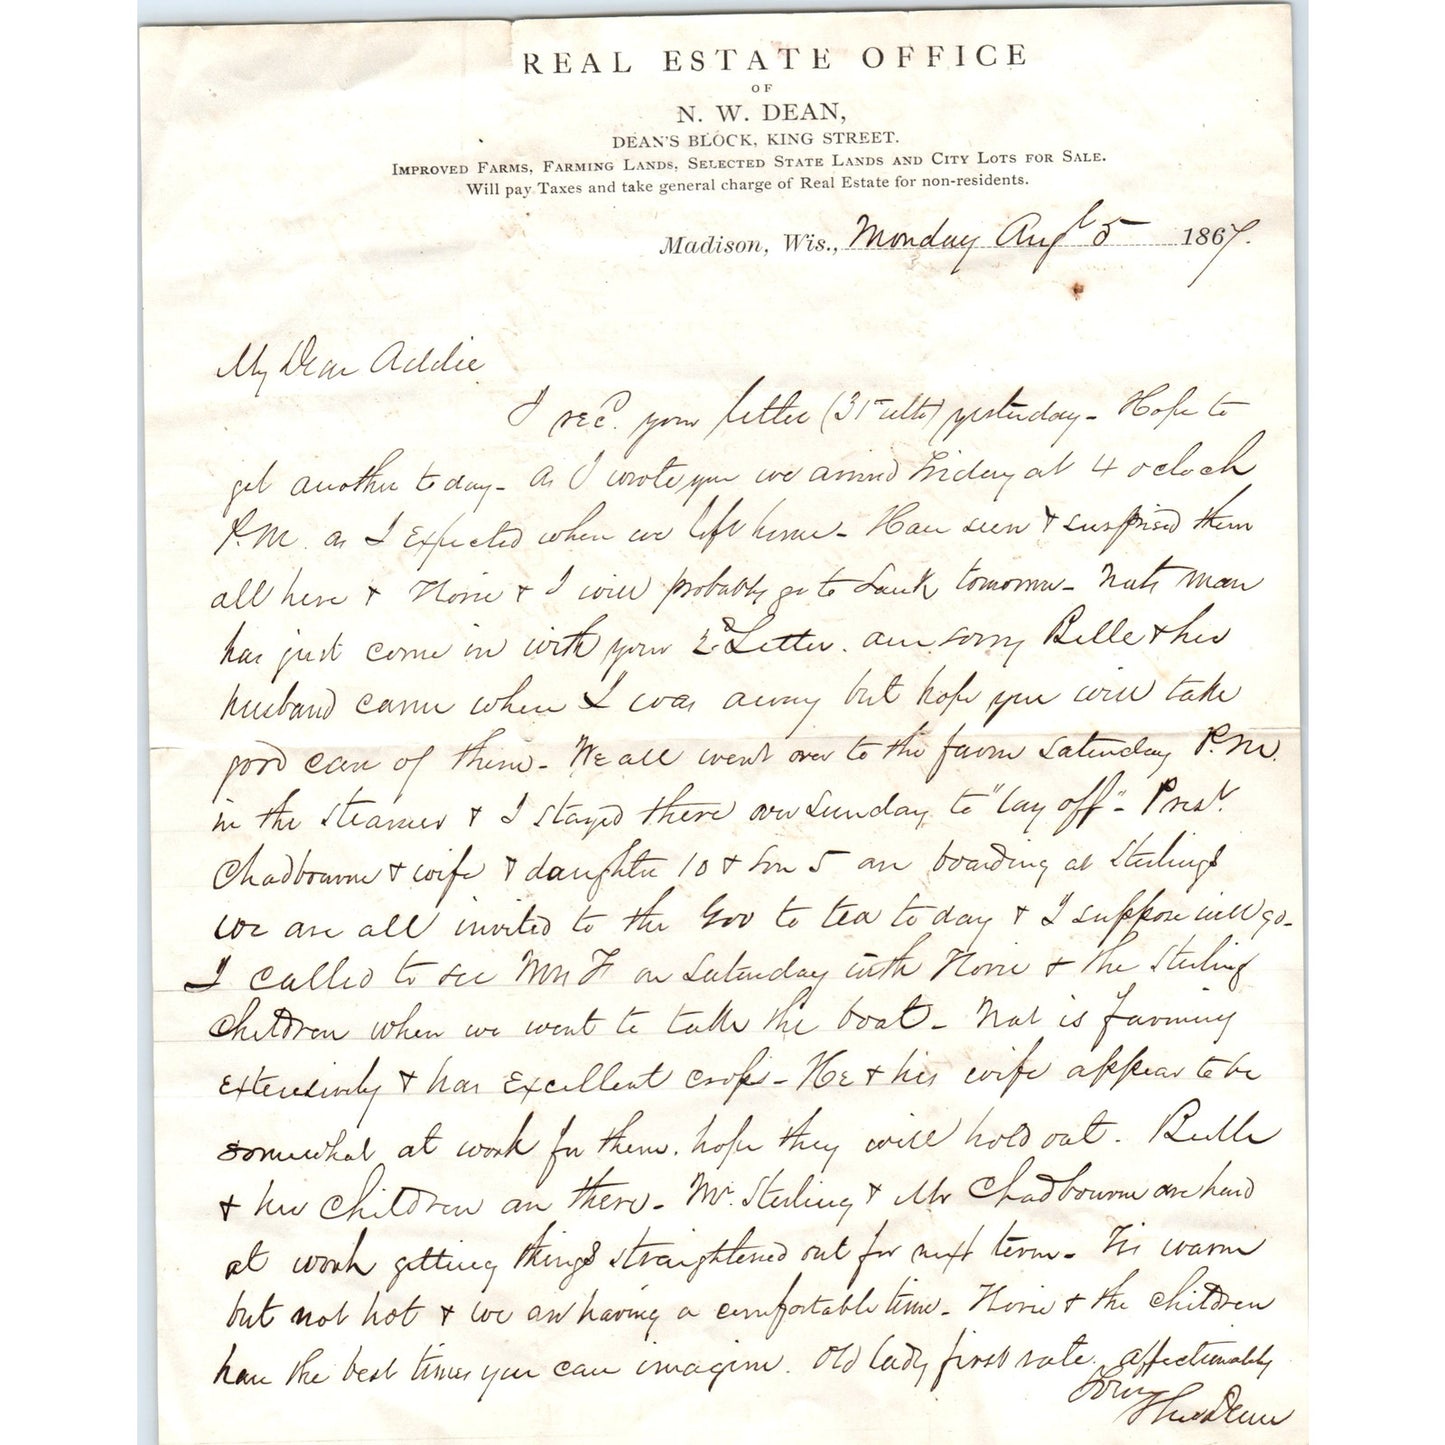 REAL ESTATE OFFICE
OF
N. W. DEAN,
DEAN'S BLOCK, KING STREET.
IMPROVED FARMS, FARMING LANDS, SELECTED STATE LANDS AND CITY LOTS FOR SALE.
Will pay Taxes and take general charge of Real Estate for non-residents.
Madison, Wis., Monday Augt 5 1867.
My Dear Addie
I recd. your letter (31st ulto) yesterday - Hope to
get another to day - As I wrote you we arrived Friday at 4 oclock
P.M. as I Expected when we left home - Have seen & surprised them
all here & & I will probably go to Sauk tomorrow - Nats man
has just come in with your 2d Letter. am sorry Belle & her
husband came when I was away but hope you will take
good care of them - We all went over to the farm Saturday P.M.
in the Steamer & I stayed there over Sunday to "lay off" - Prest.
Chadbourne & wife & daughter 10 & Son 5 are boarding at Sterlings
we are all invited to the Gov to tea to day & I suppose will go -
I called to see Mrs F on Saturday with & the Sterling
Children when we went to take the boat - Nat is farming
extensively & has Excellent crops - He & his wife appear to be
somewhat at work for them. hope they will hold out. Belle
& her Children are there - Mr. Sterling & Mr Chadbourne are hard
at work getting things straightened out for next term - Tis warm
but not hot & we are having a comfortable time - & the children
have the best times you can imagine. Old lady first rate. affectionately
Your
Dean